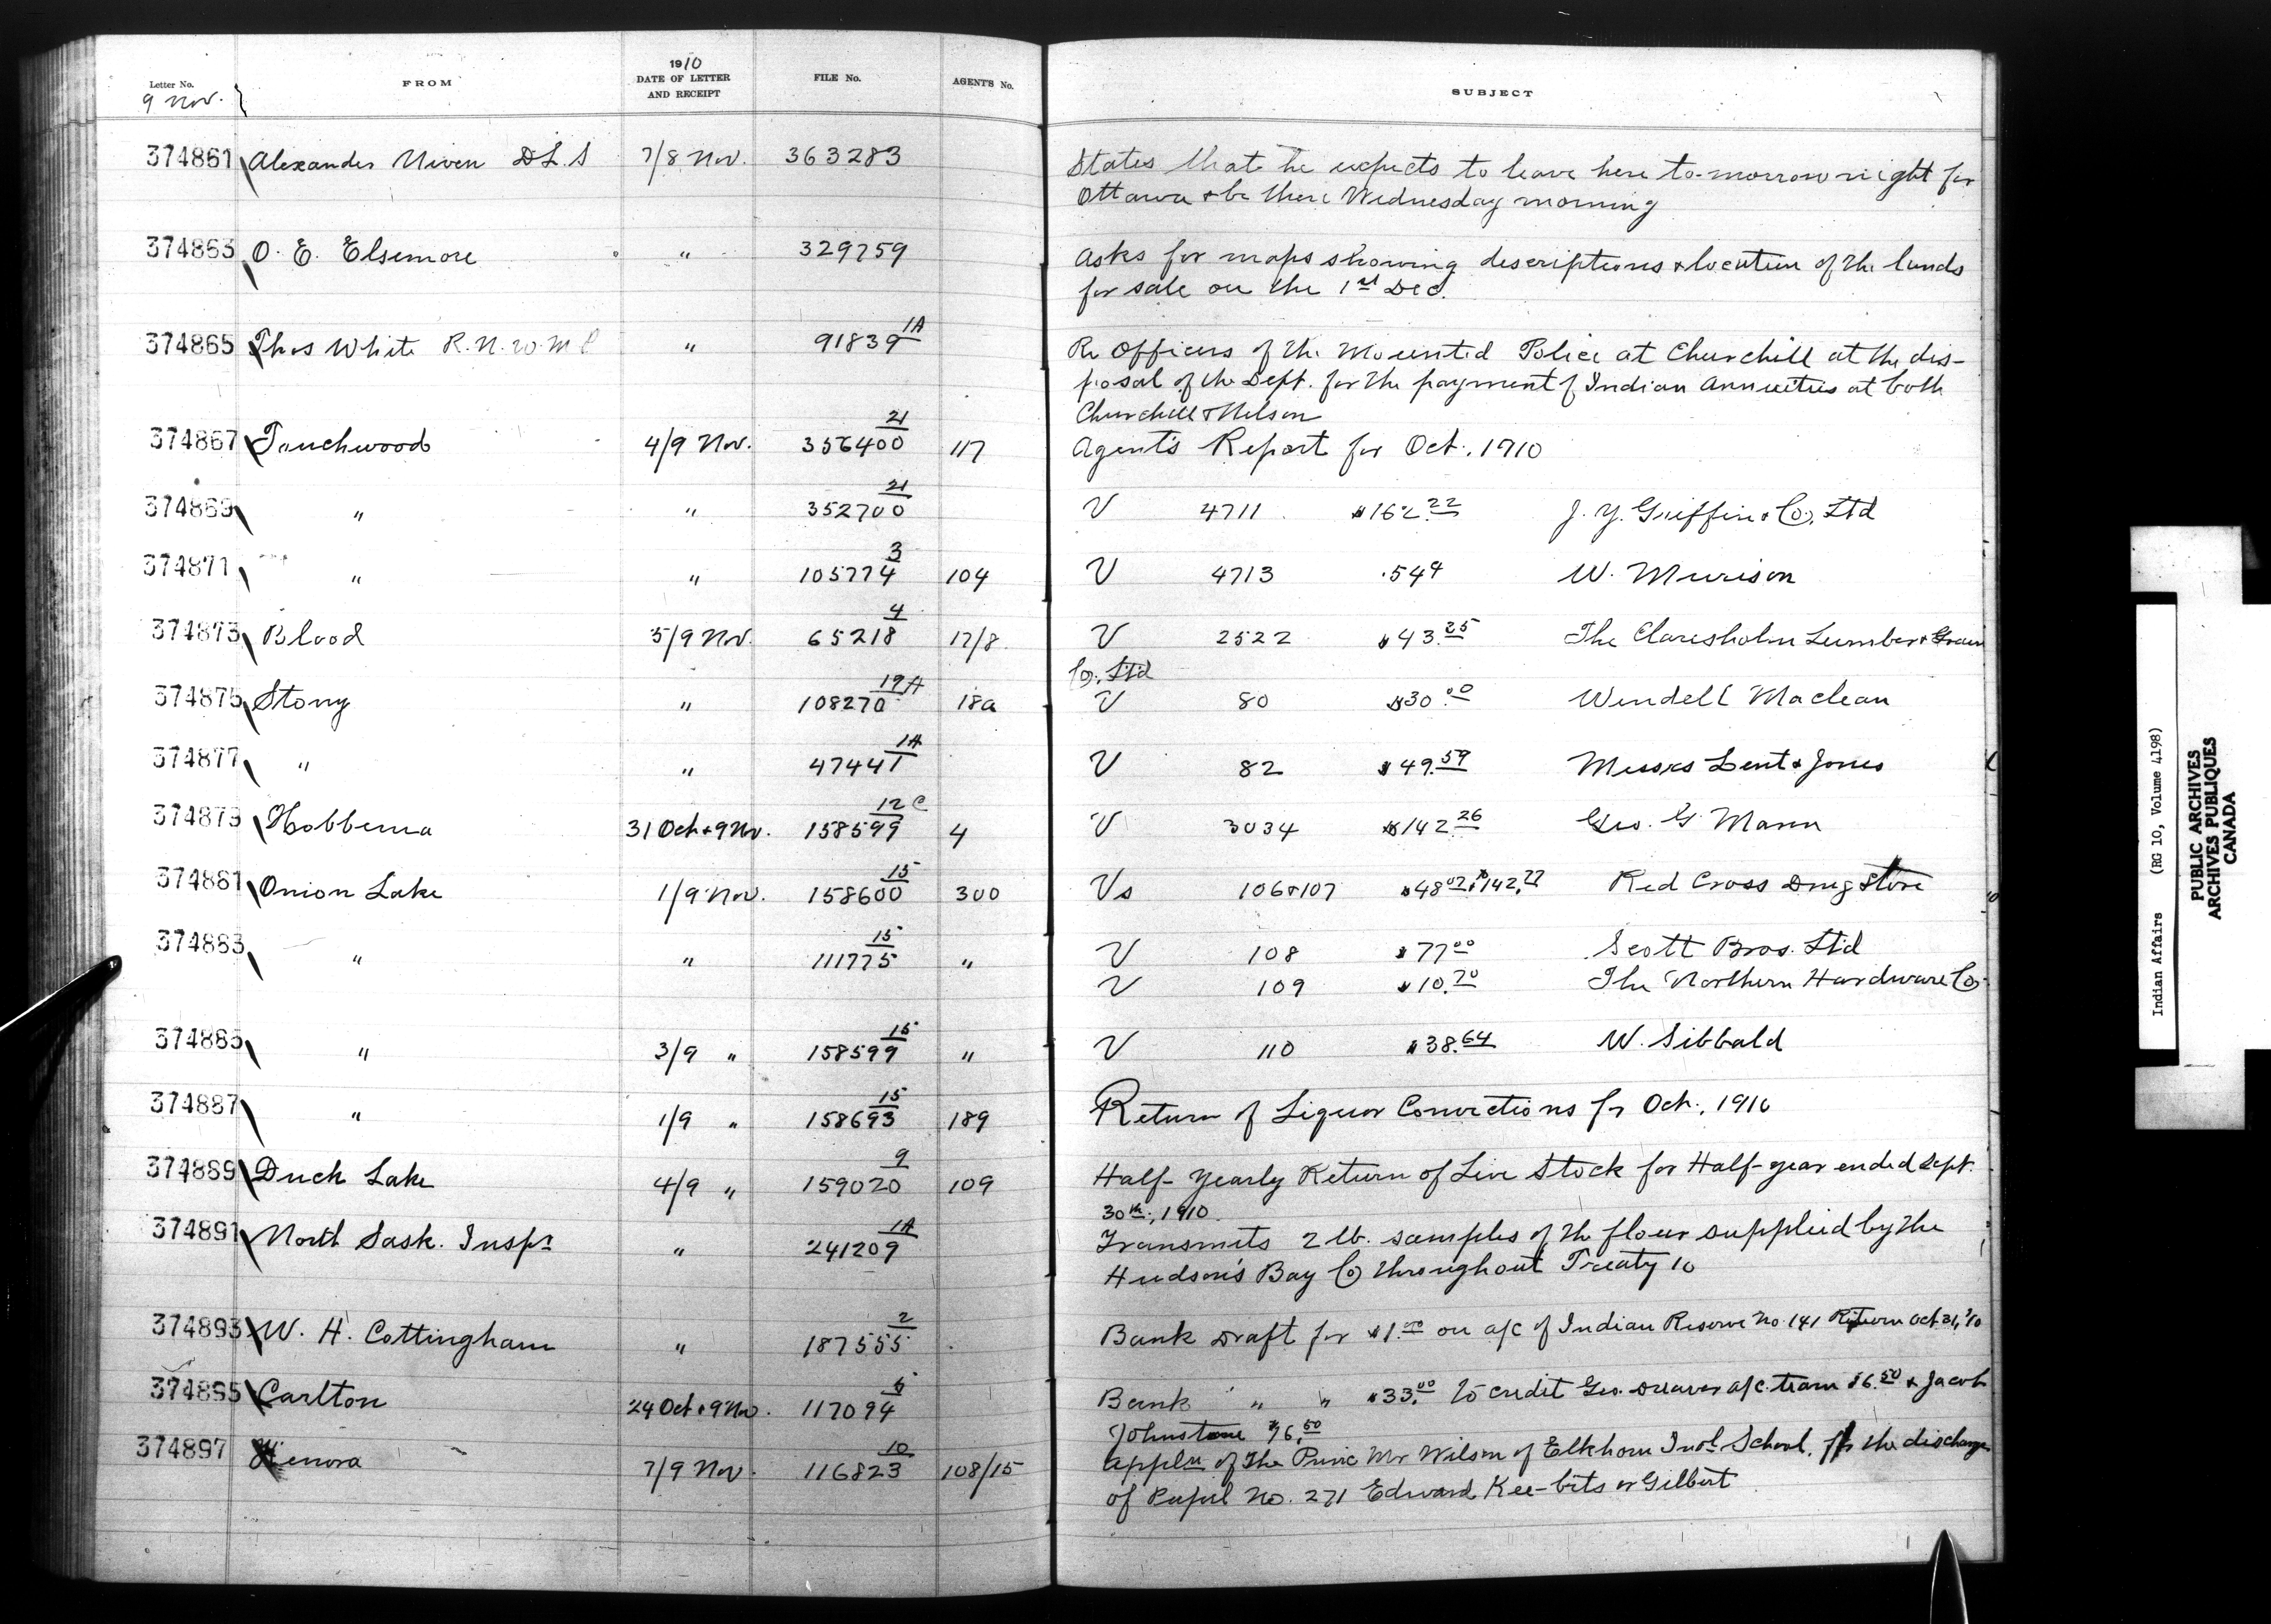 Letter No. FROM 1910 DATE OF LETTER AND RECEIPT FILE No. AGENT'S No. SUBJECT
9 Nov.
374861 Alexander Niven D.L.S 7/8 Nov. 363283 States that he expects to leave here to-morrow night for
Ottawa & be there Wednesday morning
374863 O. E. Elsemore " 329759 Asks for maps showing descriptions & location of the lands
for sale on the 1st Dec.
374865 Thos White R.N.W.M.P " 91839 1A Re Officers of the Mounted Police at Churchill at the dis-
posal of the Dept. for the payment of Indian Annuities at both
Churchill & Nelson
374867 Touchwood 4/9 Nov. 356400 21 117 Agent's Report for Oct. 1910
374869 " " 352700 21 V 4711 $162.22 J. Y. Griffin & Co. Ltd
374871 " " 105774 3 104 V 4713 .544 W. Murison
374873 Blood 5/9 Nov. 65218 4 17/8 V 2522 $43.25 The Claresholm Lumber & Grain
Co. Ltd
374875 Stony " 108270 19A 18a V 80 $30.00 Wendell Maclean
374877 " " 47441 1A V 82 $49.59 Messrs Lent & Jones
374879 Hobbema 31 Oct & 9 Nov. 158599 12C 4 V 3034 $142.26 Geo. G. Mann
374881 Onion Lake 1/9 Nov. 158600 15 300 Vs 106 & 107 $48.02 & $142.77 Red Cross Drug Store
374883 " " 111775 15 " V 108 $77.00 Scott Bros. Ltd
V 109 $10.70 The Northern Hardware Co.
374885 " 3/9 " 158599 15 " V 110 $38.64 W. Sibbald
374887 " 1/9 " 158693 15 189 Return of Liquor Convictions for Oct., 1910
374889 Duck Lake 4/9 " 159020 9 109 Half-Yearly Return of Live Stock for Half-year ended Sept.
30th, 1910
374891 North Sask. Inspr " 241209 1A Transmits 2 lb. samples of the flour supplied by the
Hudson's Bay Co throughout Treaty 10
374893 W. H. Cottingham " 187555 2 Bank Draft for $1.00 on a/c of Indian Reserve No. 141 Return Oct 31, '10
374895 Carlton 24 Oct & 9 Nov. 117094 6 Bank " " $33.00 to credit Geo. Dreaver a/c. team $6.50 & Jacob
Johnstone $6.50
374897 Kenora 7/9 Nov. 116823 10 108/15 Appln of the Princ Mr Wilson of Elkhorn Indl School, for the discharge
of Pupil No. 271 Edward Kee-bits or Gilbert
Indian Affairs (RG 10, Volume 4198)
PUBLIC ARCHIVES
ARCHIVES PUBLIQUES
CANADA